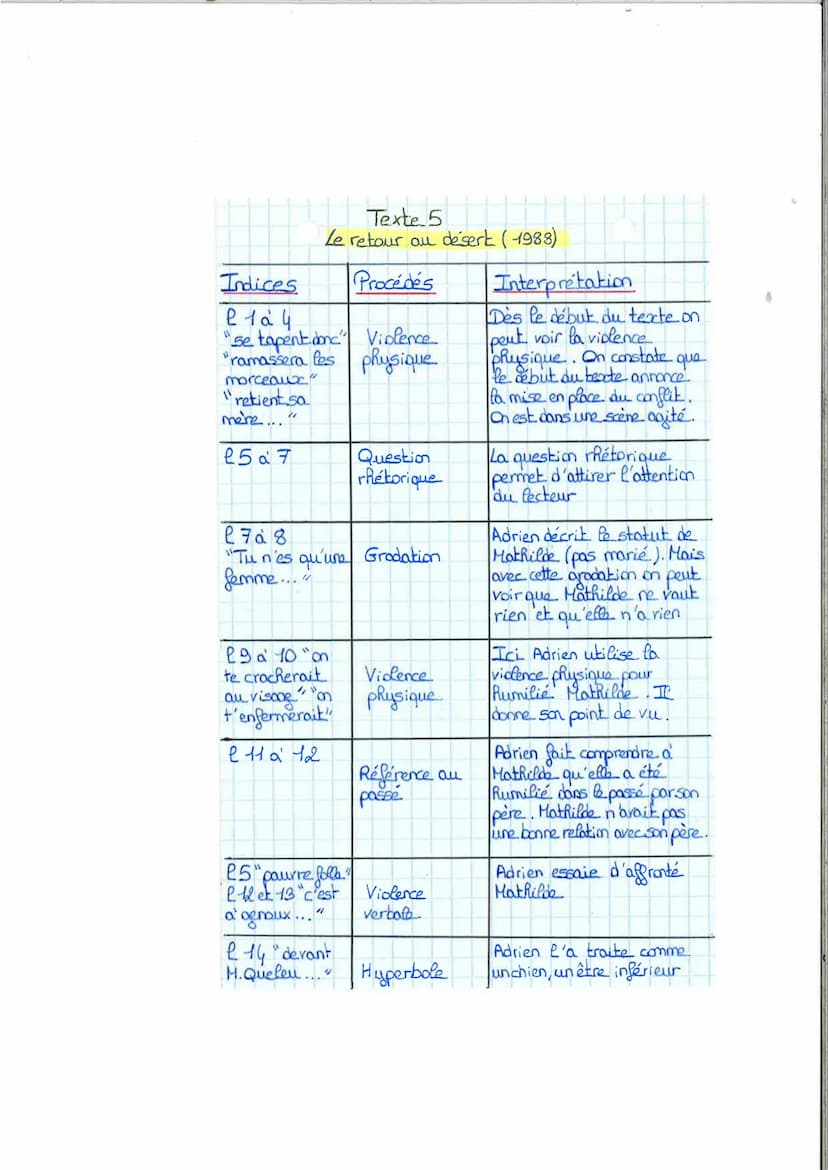 Texte 5
Le retour au désert (1988)
Indices
Procédés
Interprétation
l 1 à 4
"se tapent donc"
"ramassera les
morceaux"
"retient sa
mère..."
Violence
physique
Dès le début du texte on
peut voir la violence
physique. On constate que
le début du texte annonce
la mise en place du conflit.
On est dans une scène agité.
l 5 à 7
Question
rhétorique
La question rhétorique
permet d'attirer l'attention
du lecteur
l 7 à 8
"Tu n'es qu'une
femme..."
Gradation
Adrien décrit le statut de
Mathilde (pas marié). Mais
avec cette gradation on peut
voir que Mathilde ne vaut
rien et qu'elle n'a rien
l 9 à 10 "on
te cracherait
au visage" "on
t'enfermerait"
Violence
physique
Ici Adrien utilise la
violence physique pour
humilié Mathilde. Il
donne son point de vu.
l 11 à 12
Référence au
passé
Adrien fait comprendre à
Mathilde qu'elle a été
humilié dans le passé par son
père. Mathilde n'avait pas
une bonne relation avec son père.
l 5 "pauvre folle"
l 12 et 13 "c'est
à genoux..."
Violence
verbale
Adrien essaie d'affronté
Mathilde
l 14 "devant
M. Queleu..."
Hyperbole
Adrien l'a traite comme
un chien, un être inférieur